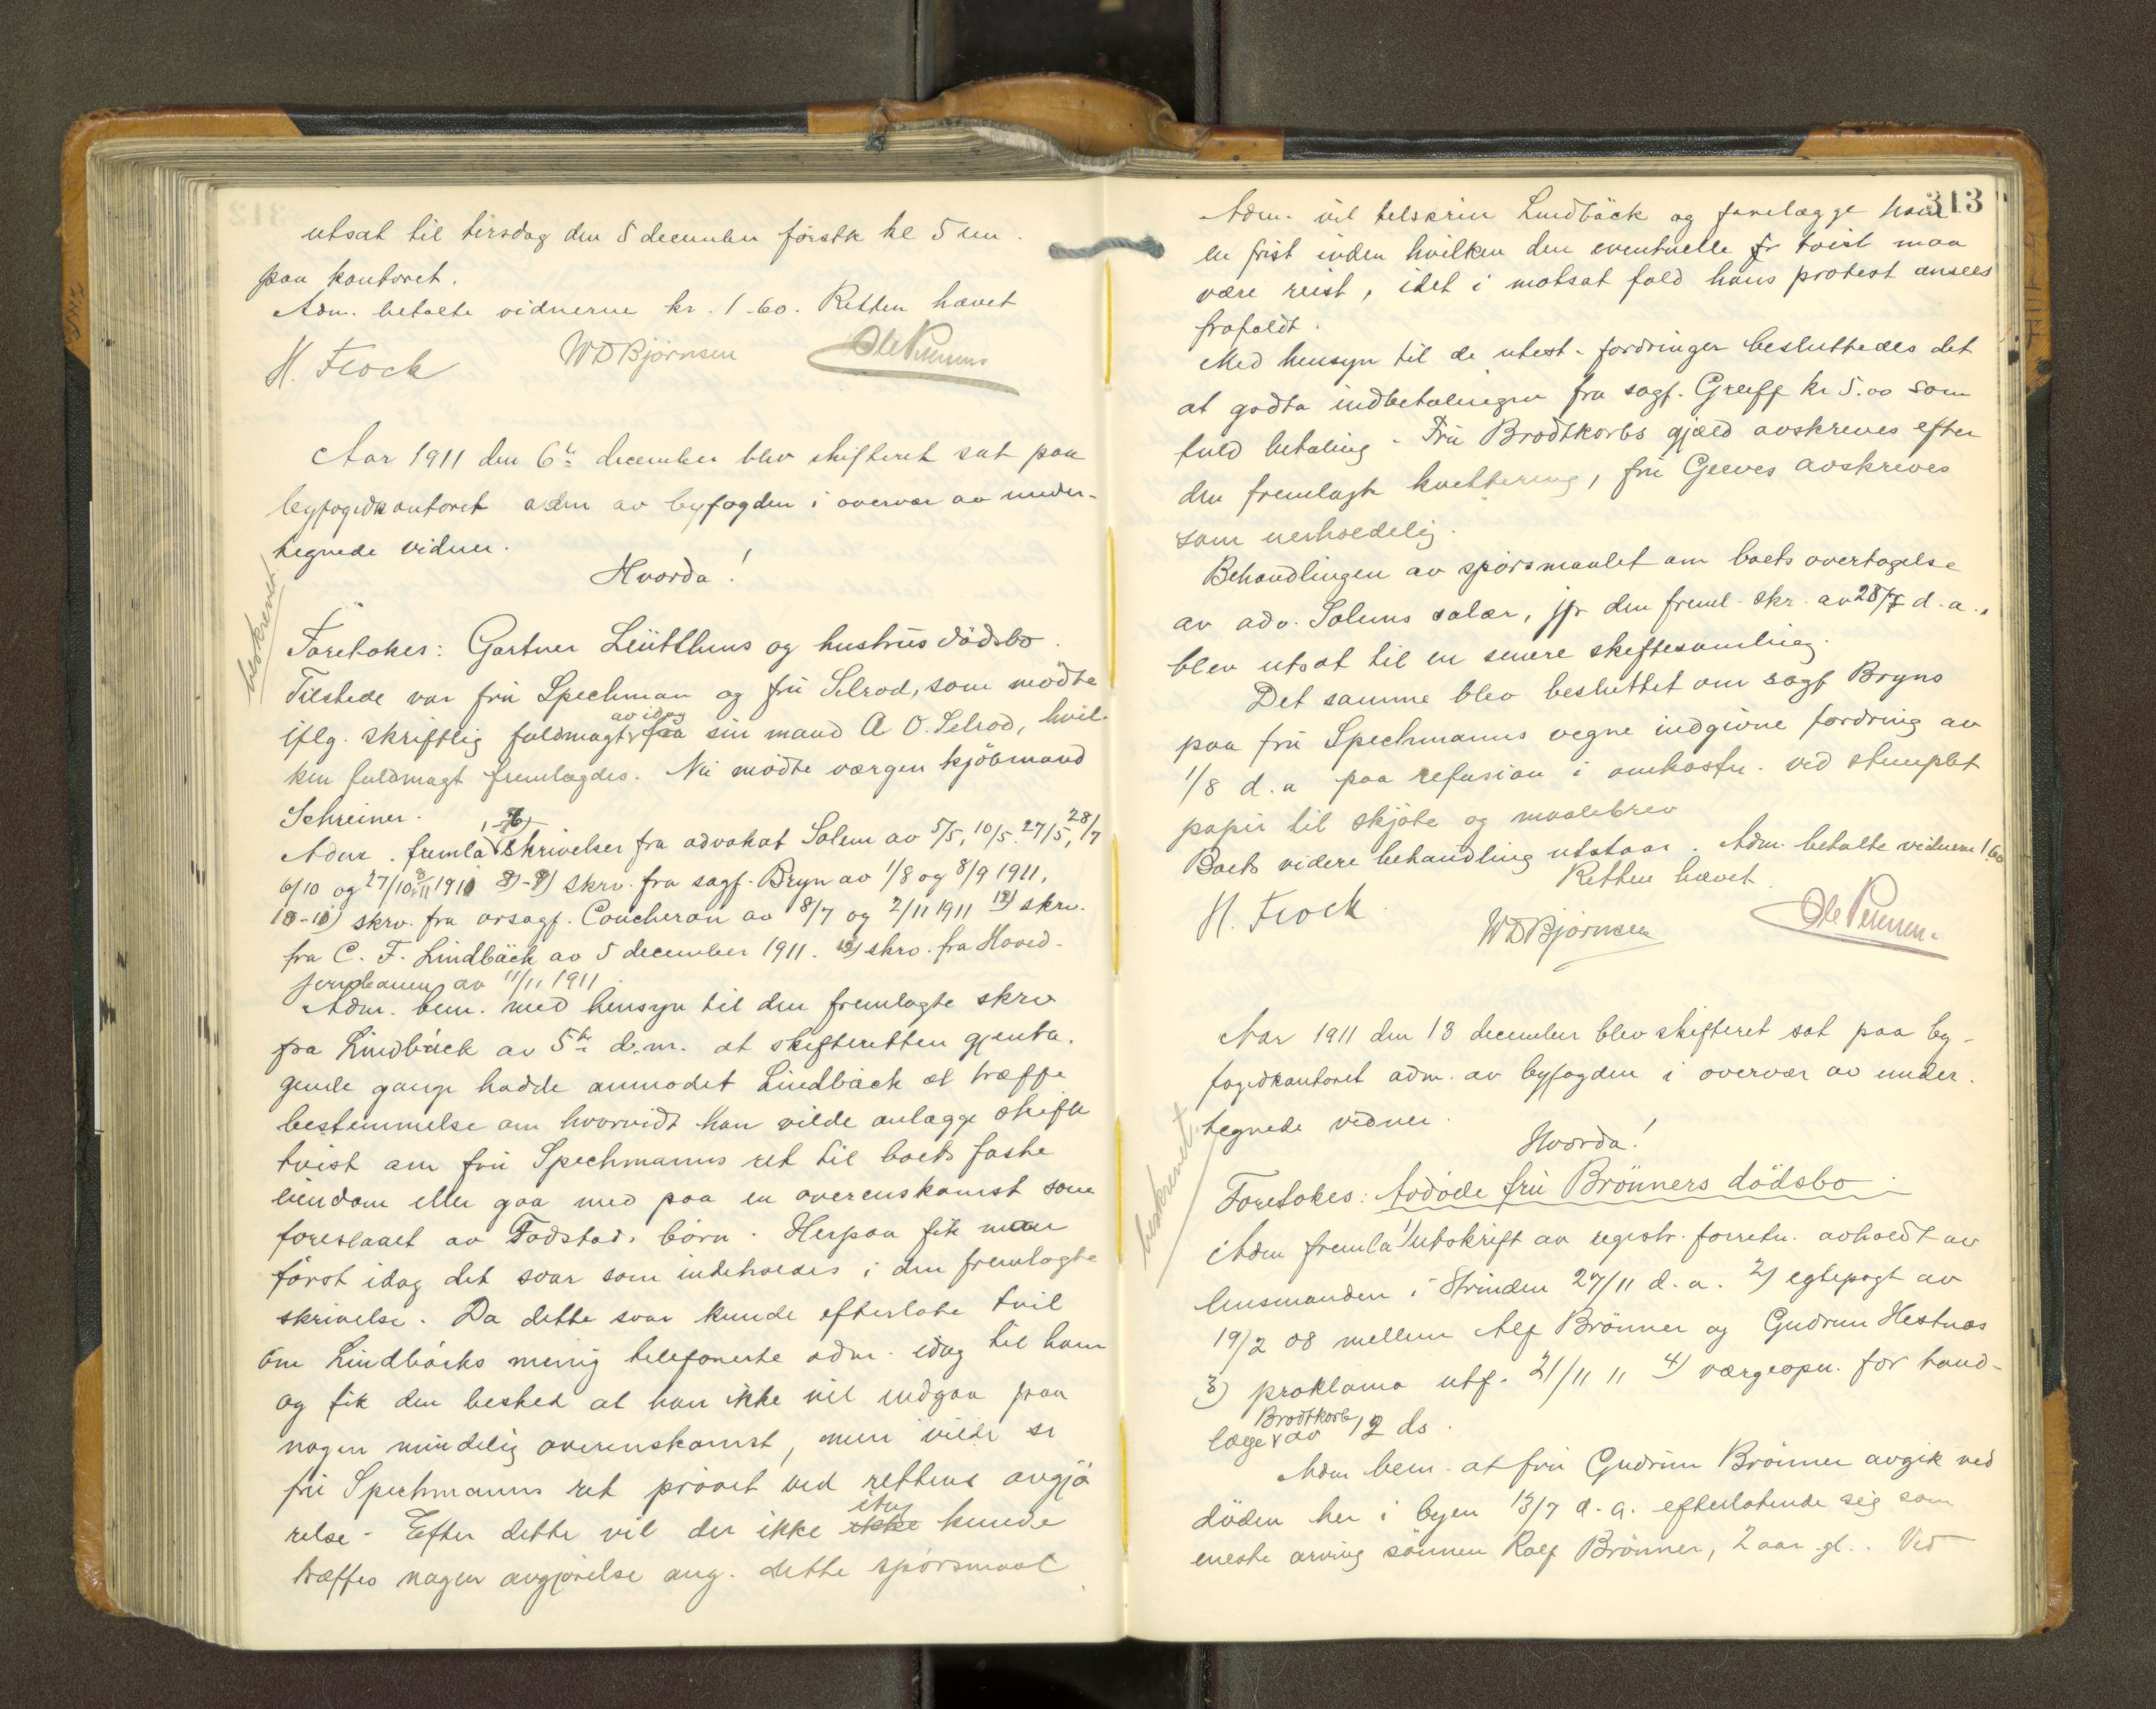 utsat til tirsdag den 5 december førstk kl 5 em.
paa kontoret.
Adm. betalte vidnerne kr. 1.60. Retten hævet
H. Frock WD Bjørnsen
Aar 1911 den 6te december blev skifteret sat paa
byfogedkontoret adm av byfogden i overvær av under-
tegnede vidner.
Hvorda!
beskrevet.
Foretokes: Gartner Leüthens og hustrus dødsbo.
Tilstede var frü Spechman og frü Selrod, som mødte
iflg. skriftlig fuldmagt av idag fra sin mand A O. Selrod, hvil-
ken fuldmagt fremlagdes. Nü mødte værgen kjøbmand
Schreiner.
Adm. fremla skrivelser fra advokat Solem av 5/5, 10/5. 27/5, 28/7
6/10 og 27/10 1911 8)-9) skrv. fra sagf. Bryn av 1/8 og 8/9 1911,
10-11) skrv. fra orsagf. Coucheron av 8/7 og 2/11 1911 12) skrv.
fra C. F. Lindbäck av 5 december 1911. 13) skrv. fra Hoved-
jernbanen av 11/11 1911.
Adm. bem. med hensyn til den fremlagte skrv
fra Lindbäck av 5te d.m. at skifteretten gjenta-
gende gange hadde anmodet Lindbäck at træffe
bestemmelse om hvorvidt han vilde anlægge skifte
tvist om frü Spechmanns ret til boets faste
eiendom eller gaa med paa en overenskomst som
foreslaaet av Fodstads børn. Herpaa fik man
først idag det svar som indeholdes i den fremlagte
skrivelse. Da dette svar kunde efterlate tvil
om Lindbäcks mening telefonerte adm. idag til ham
og fik den besked at han ikke vil indgaa paa
nogen mindelig overenskomst, men vilde se
frü Spechmanns ret prøvet ved rettens avgjø
relse. Efter dette vil der ikke ikke idag kunde
træffes nogen avgjørelse ang. dette spørsmaal
313
Adm. vil tilskrive Lindbäck og forelægge ham
en frist inden hvilken den eventuelle fr tvist maa
være reist, idet i motsat fald hans protest ansees
frafaldt.
Med hensyn til de utest. fordringer besluttedes det
at godta indbetalingen fra sagf. Greiff kr 5.00 som
fuld betaling. Frü Brodtkorbs gjæld avskreves efter
den fremlagte kvittering, frü Geeves avskreves
som uerholdelig.
Behandlingen av spørsmaalet om boets overtagelse
av adv. Solems salær, jfr den freml. skr. av 28/7 d.a.,
blev utsat til en senere skiftesamling.
Det samme blev besluttet om sagf Bryns
paa frü Spechmanns vegne indgivne fordring av
1/8 d.a paa refusion i omkostn. ved stemplet
papir til skjøte og maalebrev
Boets videre behandling utstaar. Adm. betalte vidnerne 1.60
Retten hævet.
H. Frock WD Bjørnsen
Aar 1911 den 13 december blev skifteret sat paa by-
fogedkontoret adm. av byfogden i overvær av under-
tegnede vidner.
Hvorda!
beskrevet.
Foretokes: Avdøde frü Brönners dødsbo.
Adm fremla 1) utskrift av registr. forretn. avholdt av
lensmanden i Strinden 27/11 d.a. 2) egtepagt av
19/2 08 mellem Alf Brönner og Gudrun Hestnæs
3) proklama utf. 21/11 11 4) værgeopn. for hand-
læge Brodtkorb av 12 ds.
Adm bem. at frü Gudrün Brönner avgik ved
døden her i byen 13/7 d.a. efterlatende sig som
eneste arving sønnen Rolf Brönner, 2 aar gl.. Ved